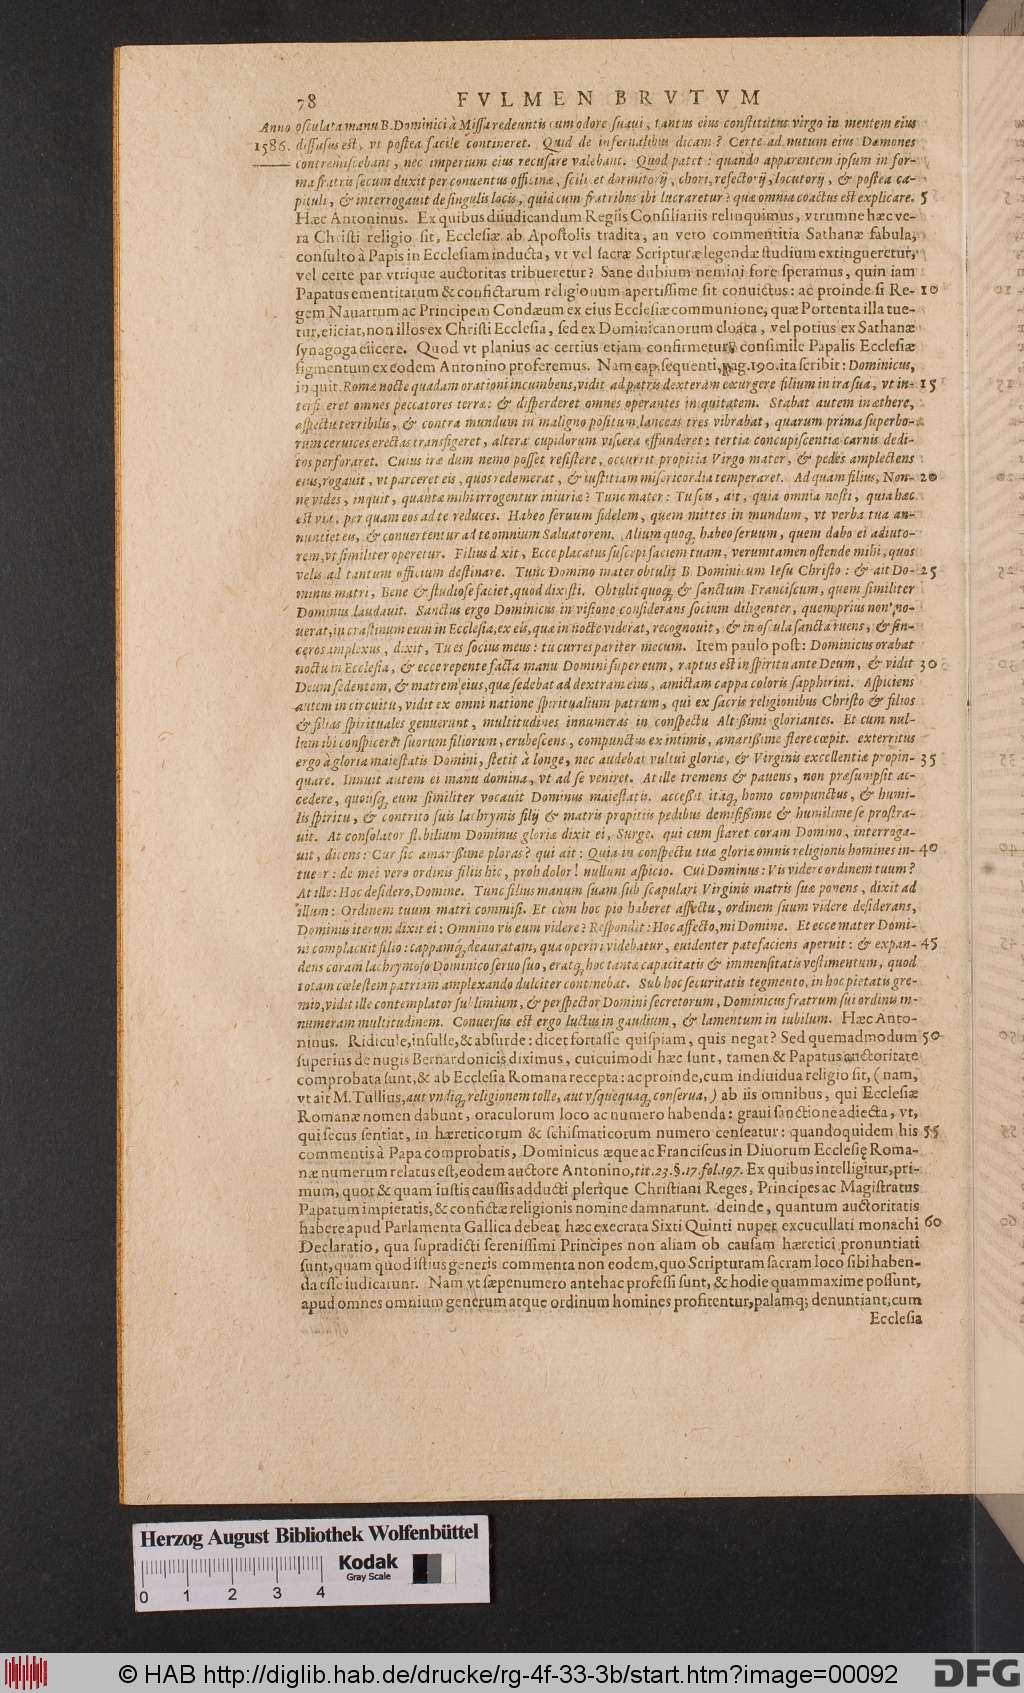 78 FVLMEN BRVTVM
Anno osculata manu B. Dominici à Missa redeuntis cum odore suaui, tantus eius constitutus virgo in mentem eius
1586. diffusus est, vt postea facile contineret. Quid de infernalibus dicam? Certe ad nutum eius Dæmones
contremiscebant, nec imperium eius recusare valebant. Quod patet: quando apparentem ipsum in for-
ma fratris secum duxit per conuentus officinæ, scilicet dormitorij, chori, refectorij, locutorij, & postea ca-
pituli, & interrogauit de singulis locis, quid cum fratribus ibi lucraretur? quæ omnia coactus est explicare. 5
Hæc Antoninus. Ex quibus diiudicandum Regiis Consiliariis relinquimus, vtrumne hæc ve-
ra Christi religio sit, Ecclesiæ ab Apostolis tradita, an vero commentitia Sathanæ fabula,
consulto à Papis in Ecclesiam inducta, vt vel sacræ Scripturæ legendæ studium extingueretur,
vel certe par vtrique auctoritas tribueretur? Sane dubium nemini fore speramus, quin iam
Papatus ementitarum & confictarum religionum apertissime sit conuictus: ac proinde si Re- 10
gem Nauarrum ac Principem Condæum ex eius Ecclesiæ communione, quæ Portenta illa tue-
tur, eiiciat, non illos ex Christi Ecclesia, sed ex Dominicanorum cloaca, vel potius ex Sathanæ
synagoga eiicere. Quod vt planius ac certius etiam confirmetur, consimile Papalis Ecclesiæ
figmentum ex eodem Antonino proferemus. Nam cap. sequenti, pag. 190. ita scribit: Dominicus,
inquit, Romæ nocte quadam orationi incumbens, vidit ad patris dexteram exurgere filium in ira sua, vt in- 15
terficeret omnes peccatores terræ: & disperderet omnes operantes iniquitatem. Stabat autem in æthere,
aspectu terribilis, & contra mundum in maligno positum lanceas tres vibrabat, quarum prima superbo-
rum ceruices erectas transfigeret, altera cupidorum viscera effunderet: tertia concupiscentiæ carnis dedi-
tos perforaret. Cuius iræ dum nemo posset resistere, occurrit propitia Virgo mater, & pedes amplectens
eius, rogauit, vt parceret eis, quos redemerat, & iustitiam misericordia temperaret. Ad quam filius, Non- 20
ne vides, inquit, quantæ mihi irrogentur iniuriæ? Tunc mater: Tu scis, ait, quia omnia nosti, quia hæc
est via, per quam eos ad te reduces. Habeo seruum fidelem, quem mittes in mundum, vt verba tua an-
nuntiet eis, & conuertentur ad te omnium Saluatorem. Alium quoq; habeo seruum, quem dabo ei adiuto-
rem, vt similiter operetur. Filius dixit, Ecce placatus suscepi faciem tuam, verumtamen ostende mihi, quos
velis ad tantum officium destinare. Tunc Domino mater obtulit B. Dominicum Iesu Christo: & ait Do- 25
minus matri, Bene & studiose faciet, quod dixisti. Obtulit quoq; & sanctum Franciscum, quem similiter
Dominus laudauit. Sanctus ergo Dominicus in visione considerans socium diligenter, quem prius non no-
uerat, in crastinum eum in Ecclesia, ex eis, quæ in nocte viderat, recognouit, & in oscula sancta ruens, & sin-
ceros amplexus, dixit, Tu es socius meus: tu curres pariter mecum. Item paulo post: Dominicus orabat
noctu in Ecclesia, & ecce repente facta manu Domini super eum, raptus est in spiritu ante Deum, & vidit 30
Deum sedentem, & matrem eius, quæ sedebat ad dextram eius, amictam cappa coloris sapphirini. Aspiciens
autem in circuitu, vidit ex omni natione spiritualium patrum, qui ex sacris religionibus Christo & filios
& filias spirituales genuerunt, multitudines innumeras in conspectu Altissimi gloriantes. Et cum nul-
lum ibi conspiceret suorum filiorum, erubescens, compunctus ex intimis, amarissime flere cœpit. exterritus
ergo à gloria maiestatis Domini, stetit à longe, nec audebat vultui gloriæ, & Virginis excellentiæ propin- 35
quare. Innuit autem ei manu domina, vt ad se veniret. At ille tremens & pauens, non præsumpsit ac-
cedere, quousq; eum similiter vocauit Dominus maiestatis. accessit itaq; homo compunctus, & humi-
lis spiritu, & contrito suis lachrymis filij & matris propitiis pedibus demississime & humilime se prostra-
uit. At consolator flebilium Dominus gloriæ dixit ei, Surge. qui cum staret coram Domino, interroga-
uit, dicens: Cur sic amarissime ploras? qui ait: Quia in conspectu tuæ gloriæ omnis religionis homines in- 40
tueor: de mei vero ordinis filiis hic, proh dolor! nullum aspicio. Cui Dominus: Vis videre ordinem tuum?
At ille: Hoc desidero, Domine. Tunc filius manum suam sub scapulari Virginis matris suæ ponens, dixit ad
illum: Ordinem tuum matri commisi. Et cùm hoc pio haberet affectu, ordinem suum videre desiderans,
Dominus iterum dixit ei: Omnino vis eum videre? Respondit: Hoc affecto, mi Domine. Et ecce mater Domi-
ni complacuit filio: cappamq; deauratam, qua operiri videbatur, euidenter patefaciens aperuit: & expan- 45
dens coram lachrymoso Dominico seruo suo, eratq; hoc tantæ capacitatis & immensitatis vestimentum, quod
totam cœlestem patriam amplexando dulciter continebat. Sub hoc securitatis tegmento, in hoc pietatis gre-
mio, vidit ille contemplator sublimium, & perspector Domini secretorum, Dominicus fratrum sui ordinis in-
numeram multitudinem. Conuersus est ergo luctus in gaudium, & lamentum in iubilum. Hæc Anto-
ninus. Ridicule, insulse, & absurde: dicet fortasse quispiam, quis negat? Sed quemadmodum 50
superius de nugis Bernardonicis diximus, cuicuimodi hæc sunt, tamen & Papatus auctoritate
comprobata sunt, & ab Ecclesia Romana recepta: ac proinde, cum indiuidua religio sit, (nam,
vt ait M. Tullius, aut vndiq; religionem tolle, aut vsquequaq; conserua,) ab iis omnibus, qui Ecclesiæ
Romanæ nomen dabunt, oraculorum loco ac numero habenda: graui sanctione adiecta, vt,
qui secus sentiat, in hæreticorum & schismaticorum numero censeatur: quandoquidem his 55
commentis à Papa comprobatis, Dominicus æque ac Franciscus in Diuorum Ecclesię Roma-
næ numerum relatus est, eodem auctore Antonino, tit. 23. §. 17. fol. 197. Ex quibus intelligitur, pri-
mum, quot & quam iustis caussis adducti plerique Christiani Reges, Principes ac Magistratus
Papatum impietatis, & confictæ religionis nomine damnarunt. deinde, quantum auctoritatis
habere apud Parlamenta Gallica debeat hæc execrata Sixti Quinti nuper excucullati monachi 60
Declaratio, qua supradicti serenissimi Principes non aliam ob causam hæretici pronuntiati
sunt, quam quod istius generis commenta non eodem, quo Scripturam sacram loco sibi haben-
da esse iudicarunt. Nam vt sæpenumero antehac professi sunt, & hodie quam maxime possunt,
apud omnes omnium generum atque ordinum homines profitentur, palamq; denuntiant, cum
Ecclesia
Herzog August Bibliothek Wolfenbüttel
Kodak
Gray Scale
0 1 2 3 4
© HAB http://diglib.hab.de/drucke/rg-4f-33-3b/start.htm?image=00092
DFG